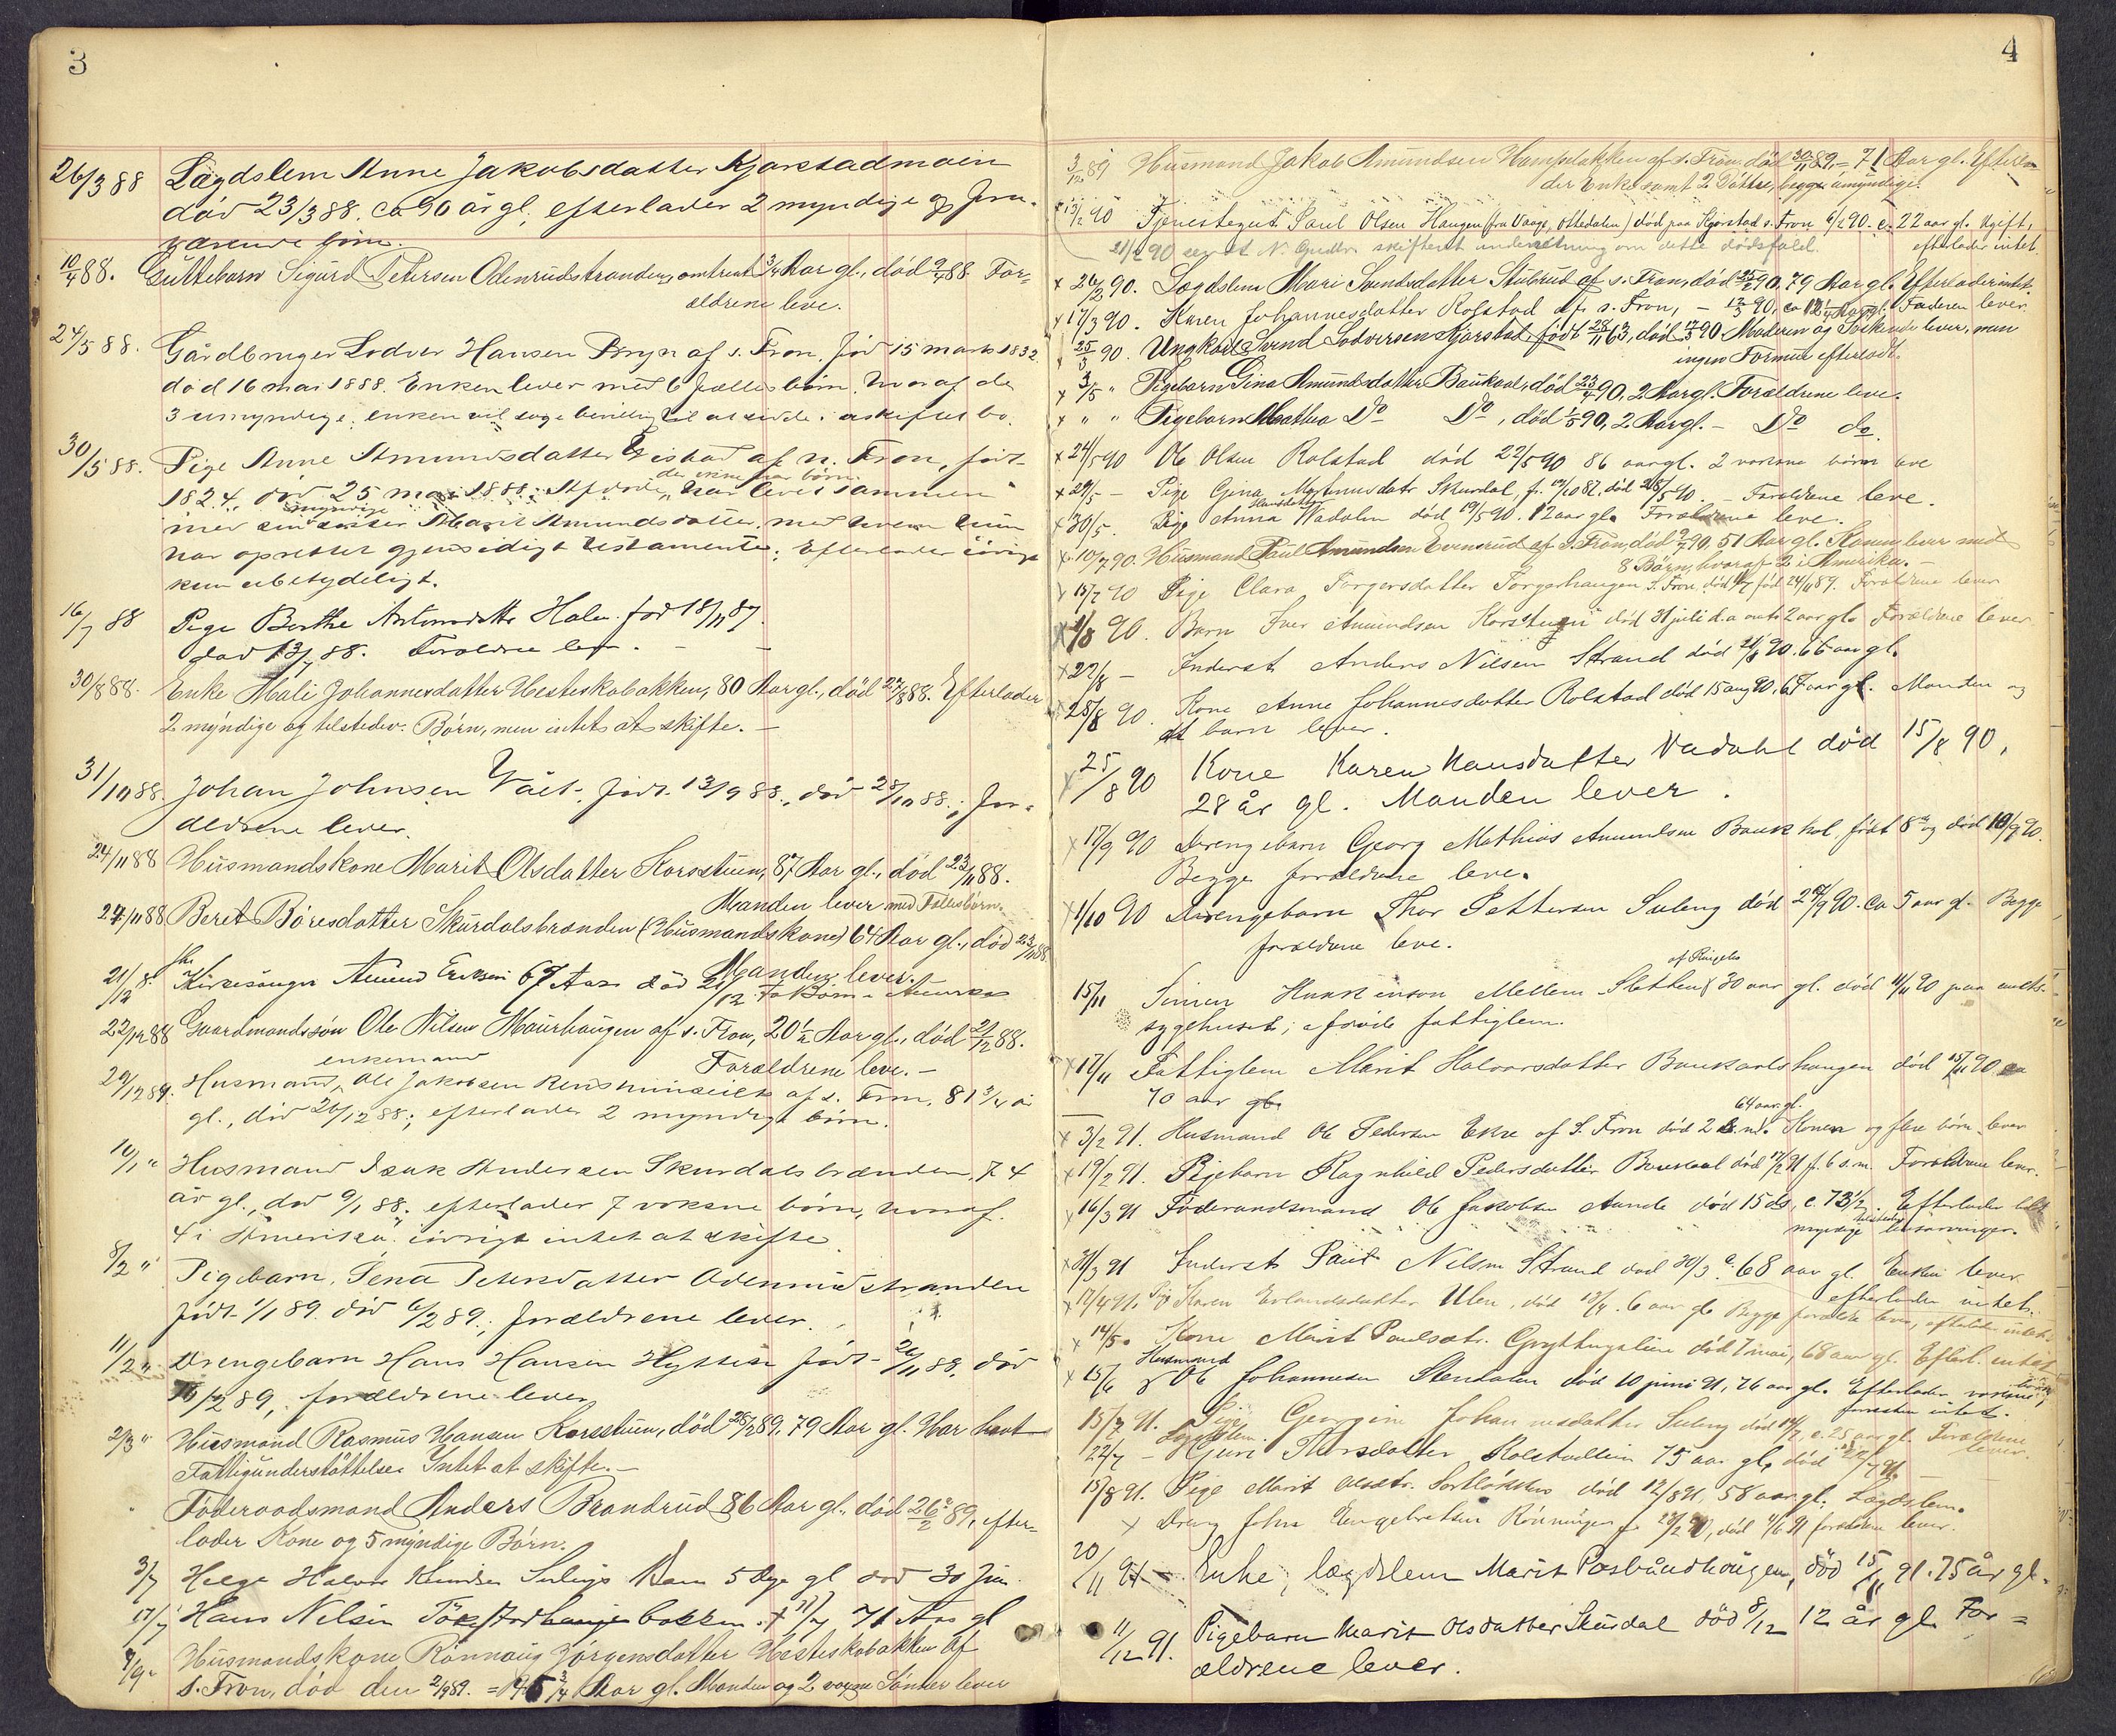 3
26/3 88 Lægdslem Anne Jakobsdatter Kjorstadmoin
død 23/3 88. ca 90 år gl., efterlader 2 myndige og
værende børn.
10/4 88. Guttebarn Sigurd Petersen Odenrudstranden, omtrent 3/4 Aar gl., død 9/4 88. For-
ældrene leve.
24/5 88. Gårdbruger Lodver Hansen Bryn af s. Fron, fød 15 marts 1832
død 16 mai 1888. Enken lever med 6 fælles børn, hvoraf de
3 umyndige; enken vil søge bevilling til at sidde i uskiftet bo.
30/5 88. Pige Anne Amundsdatter af n. Fron, født
1824, død 25 mai 1888. Afdøde, der ikke har børn, har levet sammen
med sin myndige søster Marit Amundsdatter, med hvem hun
har oprettet gjensidigt testamente; Efterlader iøvrigt
kun ubetydeligt.
16/7 88 Pige Berthe Holen. fød 18/11 87.
død 13/7 88. Forældrene lever. —
30/8 88. Enke Mali Johannesdatter Hesteskobakken, 80 Aar gl., død 27/8 88. Efterlader
2 myndige og tilstedev. Børn, men intet at skifte. —
31/10 88. Johan Johnsen født 13/9 88., død 28/10 88.; for-
ældrene lever.
24/11 88 Husmandskone Marit Olsdatter Korsstuen, 87 Aar gl., død 23/11 88.
Manden lever med Fællesbørn.
27/11 88 Beret Böresdatter Skurdalsbrænden (Husmandskone) 64 Aar gl., død 23/11 88.
Manden lever.
21/12 8. fhv Kirkesanger Amund Eriksen 67 Aar død 21/12 To Børn i Amerika
22/12 88 Gaardmandssøn Ole Nilsen Maurhaugen af s. Fron, 20 1/2 Aar gl., død 21/12 88.
Forældrene leve. —
29/12 89. Husmand, enkemand Ole Jakobsen af s. Fron, 81 3/4 år
gl., død 26/12 88; efterlader 2 myndige børn.
10/1 " Husmand Isak Andersen Skurdalsbrænden, 74
år gl., død 9/1 88. efterlader 7 voksne børn, hvoraf
4 i Amerika. iøvrigt intet at skifte
8/2 " Pigebarn, Lena Petersdatter Odenrudstranden
født 1/1 89. død 6/2 89.; forældrene lever.
11/2 " Drengebarn Hans Hansen født 26/11 88, død
2 89,. forældrene lever
2/3 " Husmand Rasmus Hansen Korsstuen, død 28/2 89, 79 Aar gl. Har havt
Fattigunderstøttelse. Intet at skifte. —
" Föderaadsmand Anders Brandrud 86 Aar gl., död 26/2 89, efter-
lader Kone og 5 myndige Börn.
3/7 Helge Halvor Sulings Barn 5 Dage gl død 30 Juni
17/7 Hans Nilsen † 11/7 71 Aar gl
4/9 " Husmandskone Rönnaug Jörgensdatter Hesteskobakken af
s. Fron, död den 2/9 89. = 3/4 Aar gl. Manden og 2 voxne Sönner lever
4
3/12 89 Husmand Jakob Amundsen af s. Fron, död 30/11 89, – 71 Aar gl. Efterla-
der Enke samt 2 Döttre, begge umyndige.
x 13/2 90 Tjenestegut Paul Olsen Haugen (fra Vaage, Ottedalen) død paa Kjorstad s. Fron 6/2 90. c. 22 aar gl. Ugift,
efterlader intet.
21/2 90 sendt N. Gudbr. skifteret underretning om dette dødsfald.
x 26/2 90. Lægdslem Mari Svendsdatter Stubrud af s. Fron, död 25/2 90, 79 Aar gl. Efterlader intet.
x 17/3 90. Karen Johannesdatter Rolstad af s. Fron, – 13/3 90, ca Aar gl. Faderen lever.
x 25/3 90. Ungkarl Svend Lodversen Kjorstad, født 28/11 63, död 17/3 90 Moderen og Söskende lever, men
ingen Formue efterladt.
x 3/5 " Pigebarn Gina Amundsdatter Baukaal, död 23/4 90, 2 Aar gl. Forældrene leve.
x " " Pigebarn Mathea Do Do, död 1/5 90, 2 Aar gl. – Do do.
x 24/5 90 Ole Olsen Rolstad død 22/5 90 86 aar gl. 2 voksne børn leve
x 29/5 – Pige Gina Martinusdatr Skurdal, f. 10/10 87, død 28/5 90. – Forældrene leve.
x 30/5. Pige Anna Hansdatter Vadalen død 19/5 90. 12 aar gl. Forældrene leve.
x 10/7 90. Husmand Paul Amundsen Evensrud af s. Fron, död 9/7 90, 51 Aar gl. Konen lever med
8 Börn, hvoraf 2 i Amerika. —
x 15/7 90 Pige Clara Torgersdatter Torgerhaugen S. Fron, død fød 24/11 89. Forældrene lever
x 1/8 90. Barn Iver Amundsen Korsstugu død 31 juli d.a omtr 2 aar gl. Forældrene lever
x 22/8 – Inderst Anders Nilsen Strand død 21/8 90. 66 aar gl.
x 25/8 90. Kone Anne Johannesdatter Rolstad død 15 aug 90. 67 aar gl. Manden og
et barn lever.
x 25/8 90 Kone Karen Hansdatter Vadahl død 15/8 90,
28 år gl. Manden lever.
x 17/9 90 Drengebarn Georg Mathias Amundsen Baukhol, født 8de og død 10/9 90.
Begge forældrene leve.
x 1/10 90 Drengebarn Thor Pettersen Suleng død 29/9 90. ca 5 aar gl. Begge
forældrene leve.
15/11 Simen Haakenson Mellem-Sletten af Ringebo 30 aar gl. død 11/11 90 paa amts-
sygehuset; afdøde fattiglem.
x 17/11 Fattiglem Marit Halvorsdatter Baukaalshaugen død 15/11 90 ca
70 aar gl.
x 3/2 91. Husmand Ole Pedersen Ekre af S. Fron død 2 s.m. 64 aar gl. Konen og flere børn lever
x 19/2 91. Pigebarn Ragnhild Pedersdatter Baukaal død 17/2 91 f. 6 s.m. Forældrene lever.
x 16/3 91 Føderaadsmand Ole Jakobsen Aunde død 15 ds, c. 73 1/2. Efterlader
myndige tilstedev. livsarvinger.
x 31/3 91 Inderst Paul Nilsen Strand død 30/3. c. 68 aar gl. Enken lever.
efterlader intet.
x 17/4 91. Pige Karen Erlandsdatter Ulen, død 13/4. 6 aar gl. Begge forældre leve, efterlader intet.
x 14/5. Kone Marit Paulsdtr. død 7 mai, 68 aar gl. Efterl. intet
x 15/6 Husmand Ole Johannesen Stendalen død 10 juni 91, 76 aar gl. Efterlader voksne børn;
foresten intet.
15/7 91. Pige Georgine Johannesdatter Suleng død 14/7, c. 25 aar gl. Forældrene
lever.
22/7 – Lægdslem. Guri Thorsdatter Rolstadlien 75 aar gl, død 22/7 91. —
15/8 91. Pige Marit Olsdtr. død 12/8 91, 58 aar gl. Lægdslem.
x Dreng John Engebretsen Rönningen f. 28/2 90, død 4/6 91 forældrene lever.
20/11 91 – Enke, lægdslem Marit død 15/11 91. 75 år gl.
11/12 91. Pigebarn Marit Olsdatter Skurdal død 8/12 12 år gl. For=
ældrene lever.